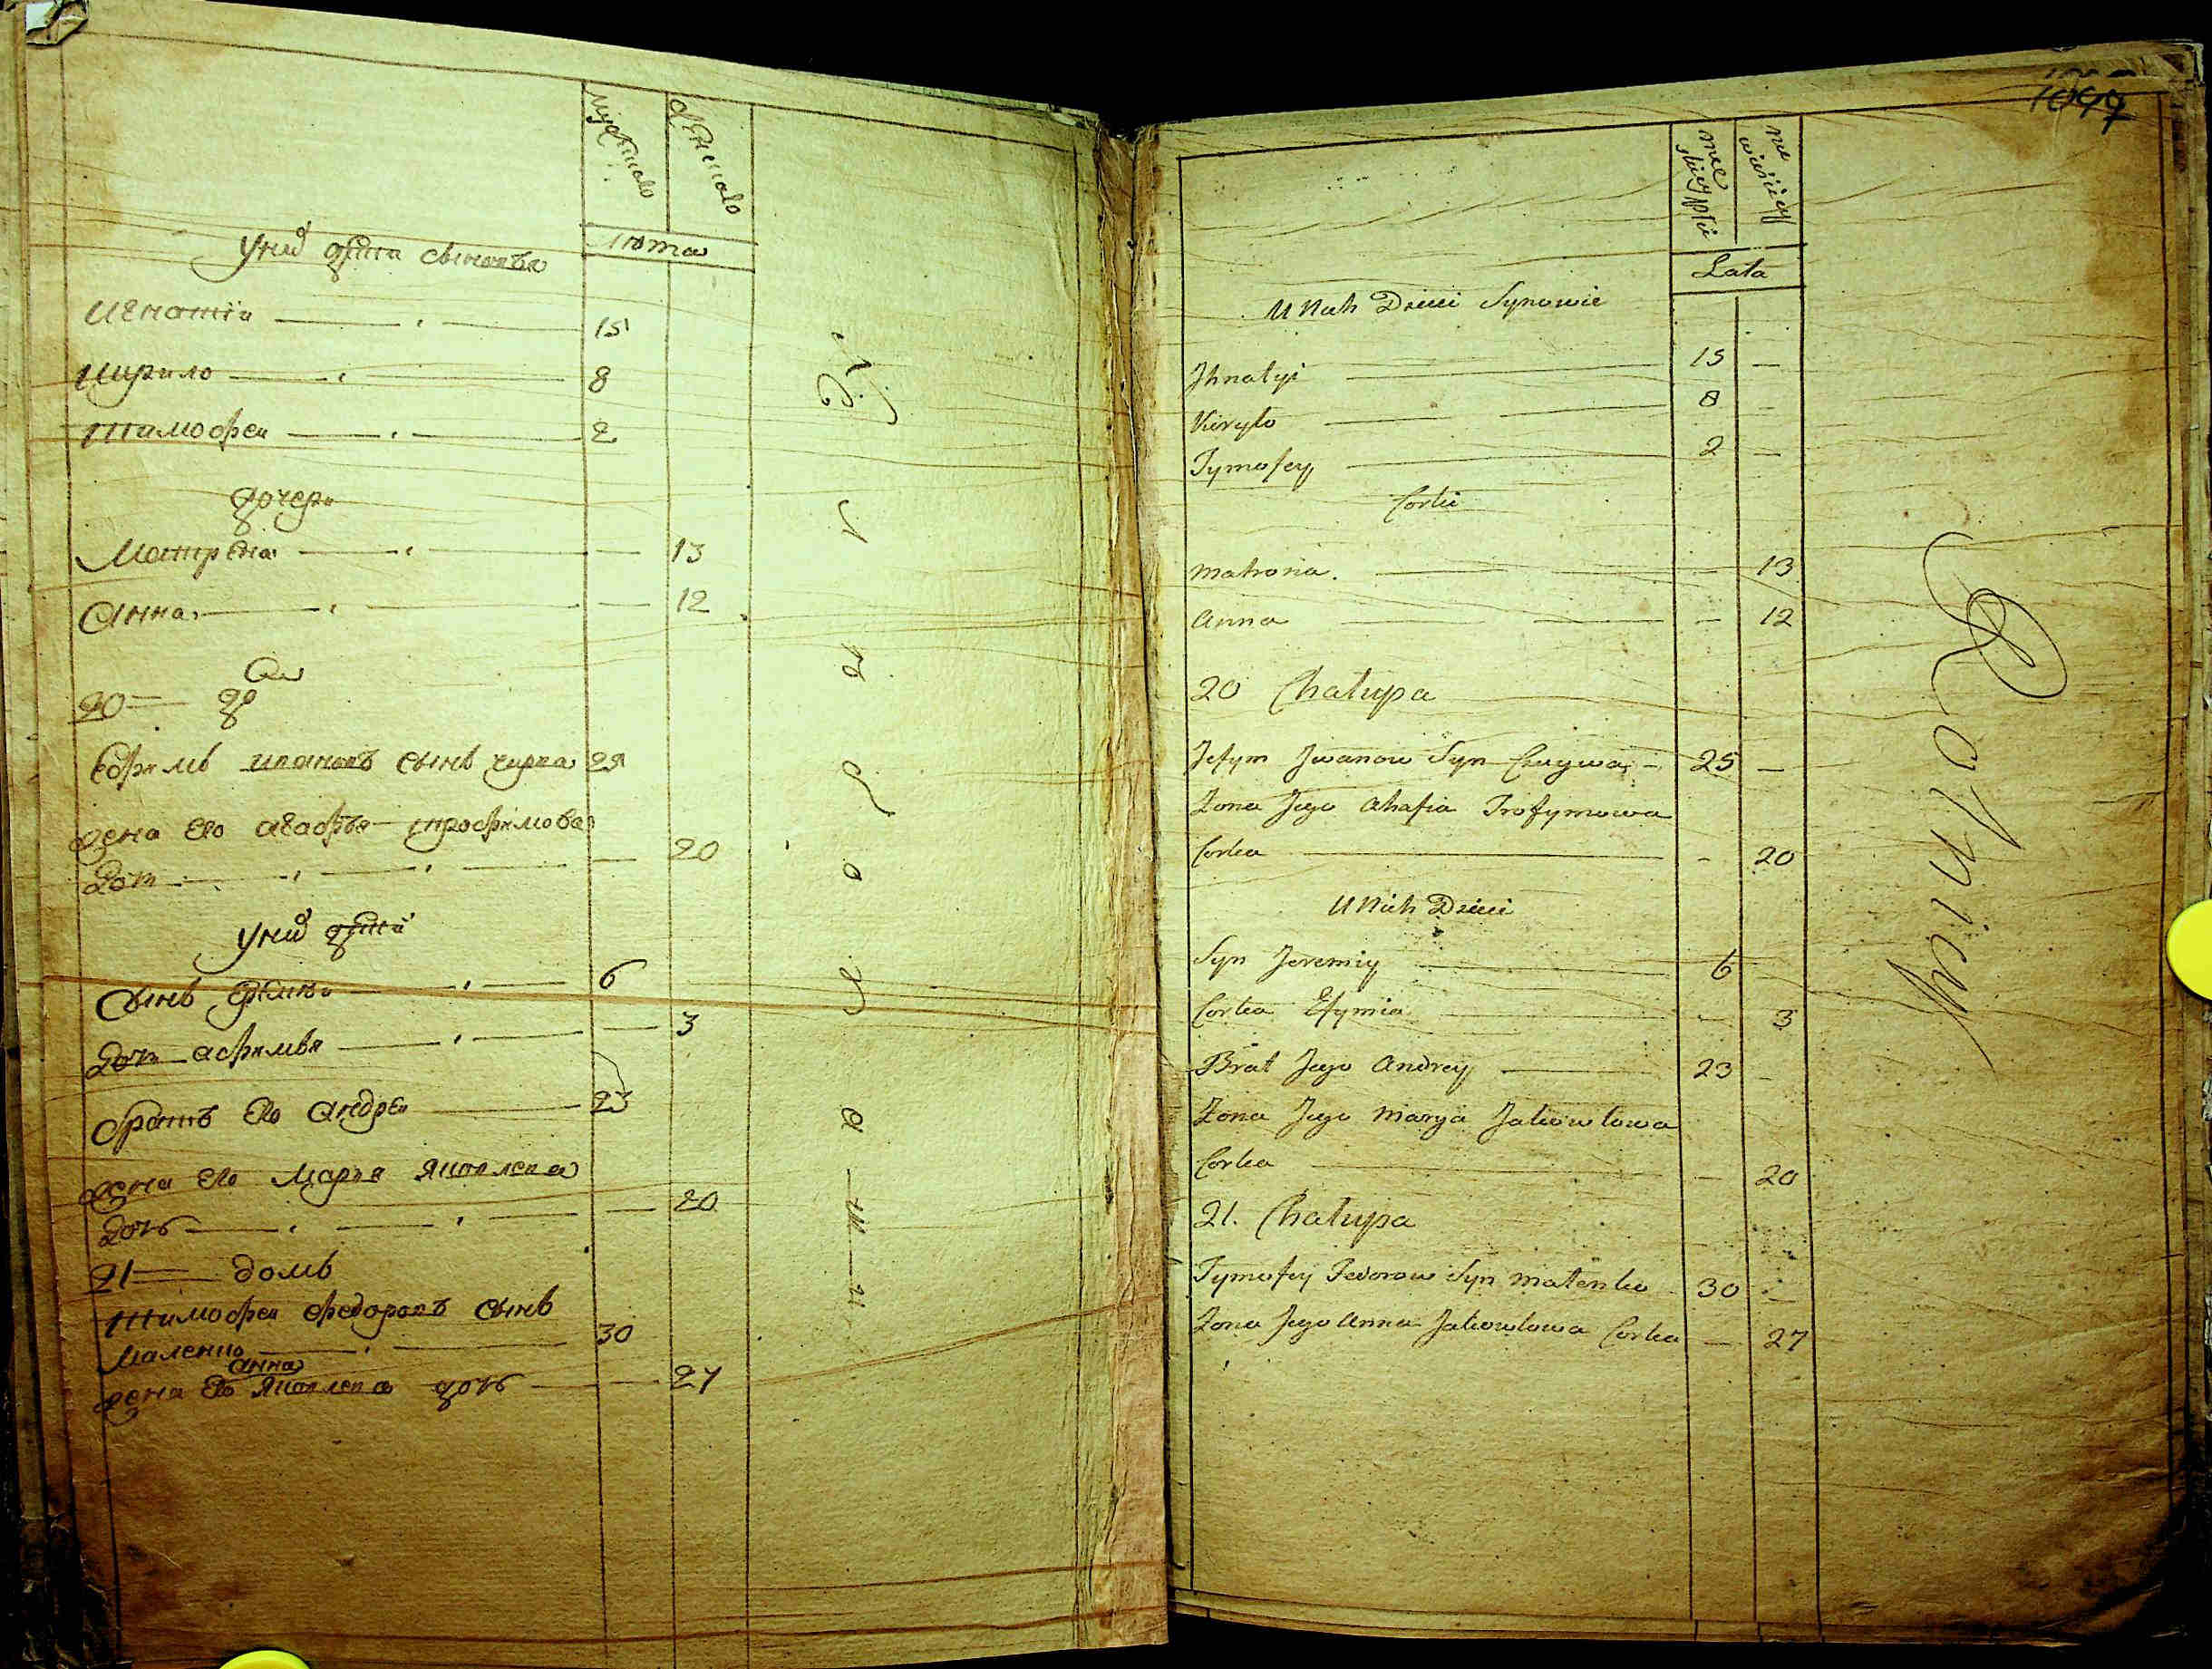 мужеска
женска
лѣта
у них дѣти сыновья
Игнатiй 15
Кирило 8
Тимофеи 2
дочери
Матрена 13
Анна 12
20 до
Ефимъ Ивановъ сынъ 25
жена его Агафья Трофимова
дочь 20
у них дѣти
Сынъ 6
дочь Афимья 3
братъ его Андреи 23
жена его Марья Яковлева
дочь 20
21 домъ
Тимофеи Федоровъ сынъ
Маленко 30
Анна
жена его Яковлева дочь 27
1097
męc
skiey płci
nie
wieściey
Lata
U Nich Dzieci Synowie
Jhnatyi 15
Kiryło 8
Tymofey 2
Corki
Matrona 13
Anna 12
20 Chałupa
Jefym Jwanow Syn 25
Żona Jego Ahafia Trofymowa
Corka 20
U Nich Dzieci
Syn Jeremiy 6
Corka Efymia 3
Brat Jego Andrey 23
Żona Jego Marya Jakowlowa
Corka 20
21. Chałupa
Tymofey Fedorow Syn Malenko 30
Żona Jego Anna Jakowlowa Corka 27
Rolnicy